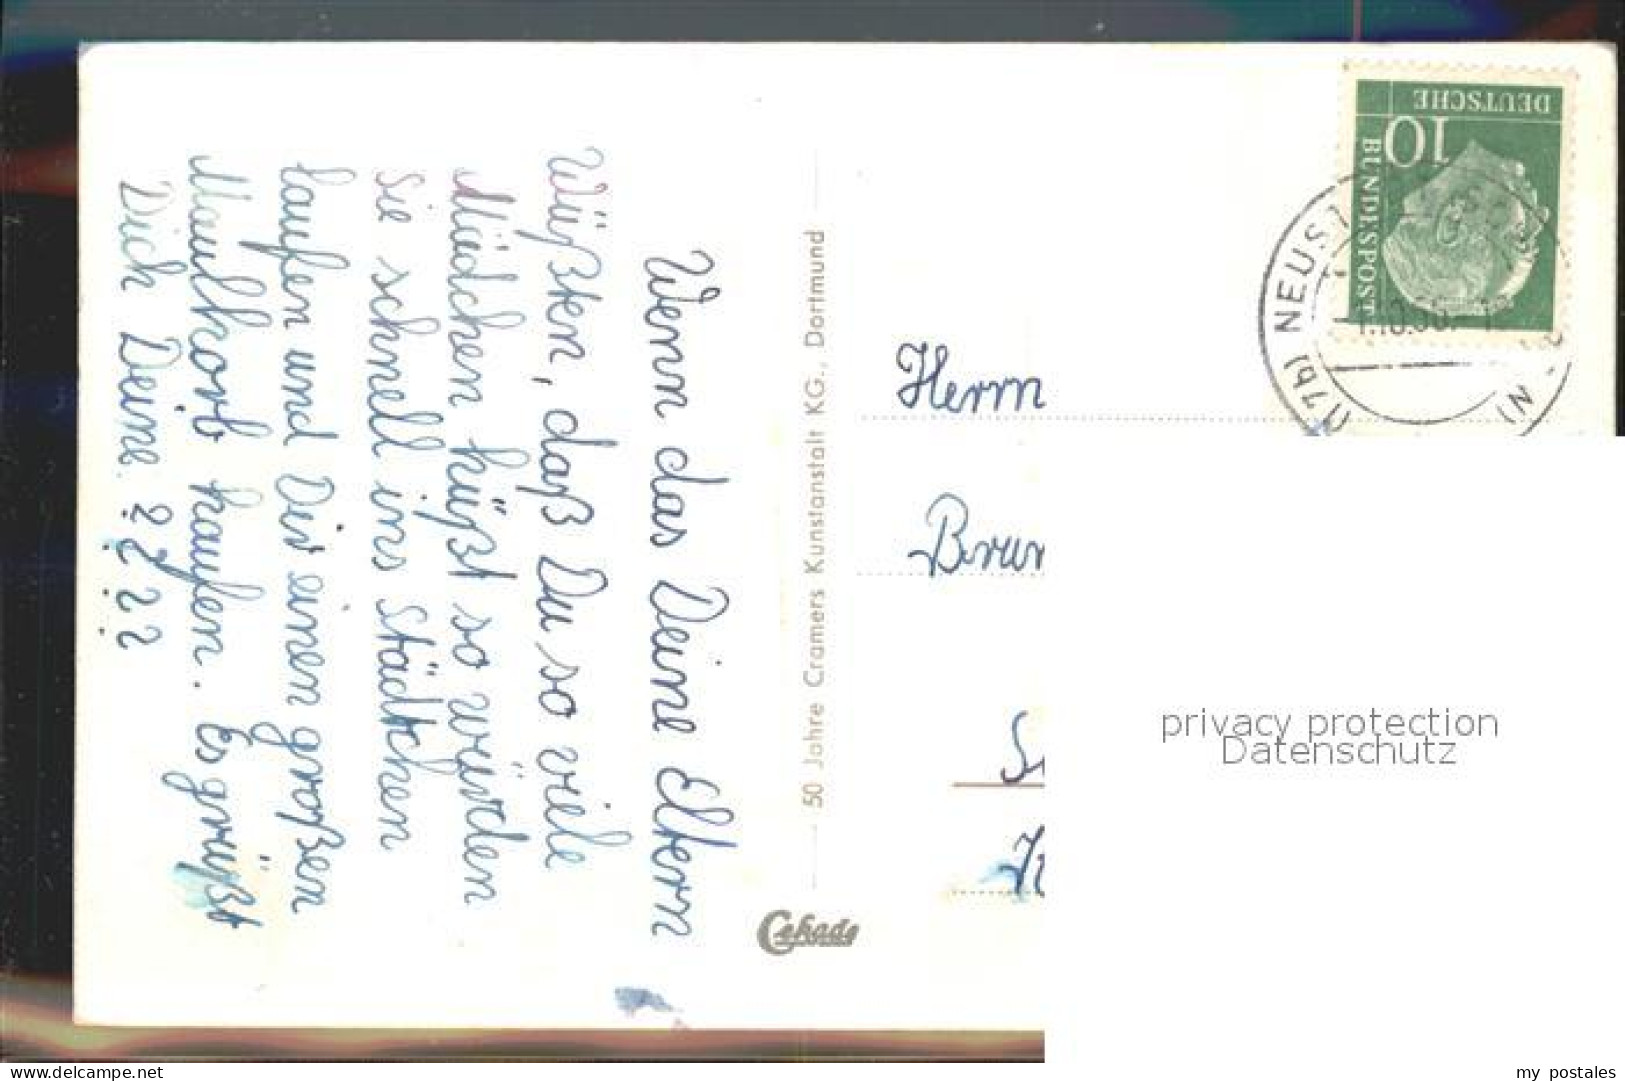 Wenn das Deine Eltern
Wüßten, daß Du so viele
Mädchen küßt so würden
sie schnell ins städtchen
laufen und Dir einen großen
Maulkorb kaufen. Es grüßt
Dich Deine ? ? ? ?
50 Jahre Cramers Kunstanstalt KG., Dortmund
Cekade
DEUTSCHE
BUNDESPOST
10
(17b) NEUST
Herrn
privacy protection
Datenschutz
www.delcampe.net
my postales